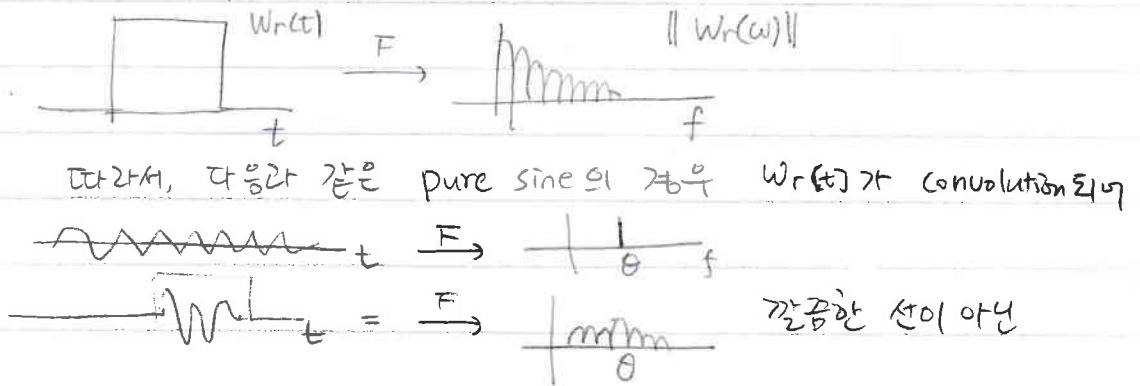 Wr(t) F ‖ Wr(ω)‖
t f
따라서, 다음과 같은 pure sine의 경우 Wr(t)가 convolution되어
t F θ f
t = F θ 깔끔한 선이 아닌